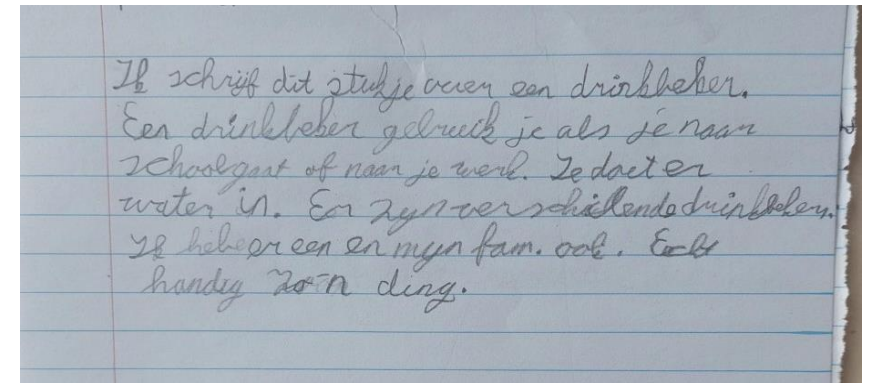 Ik schrijf dit stukje over een drinkbeker.
Een drinkbeker gebruik je als je naar
school gaat of naar je werk. Je doet er
water in. Er zijn verschillende drinkbekers.
Ik heb er een en mijn fam. ook. Echt
handig zo'n ding.